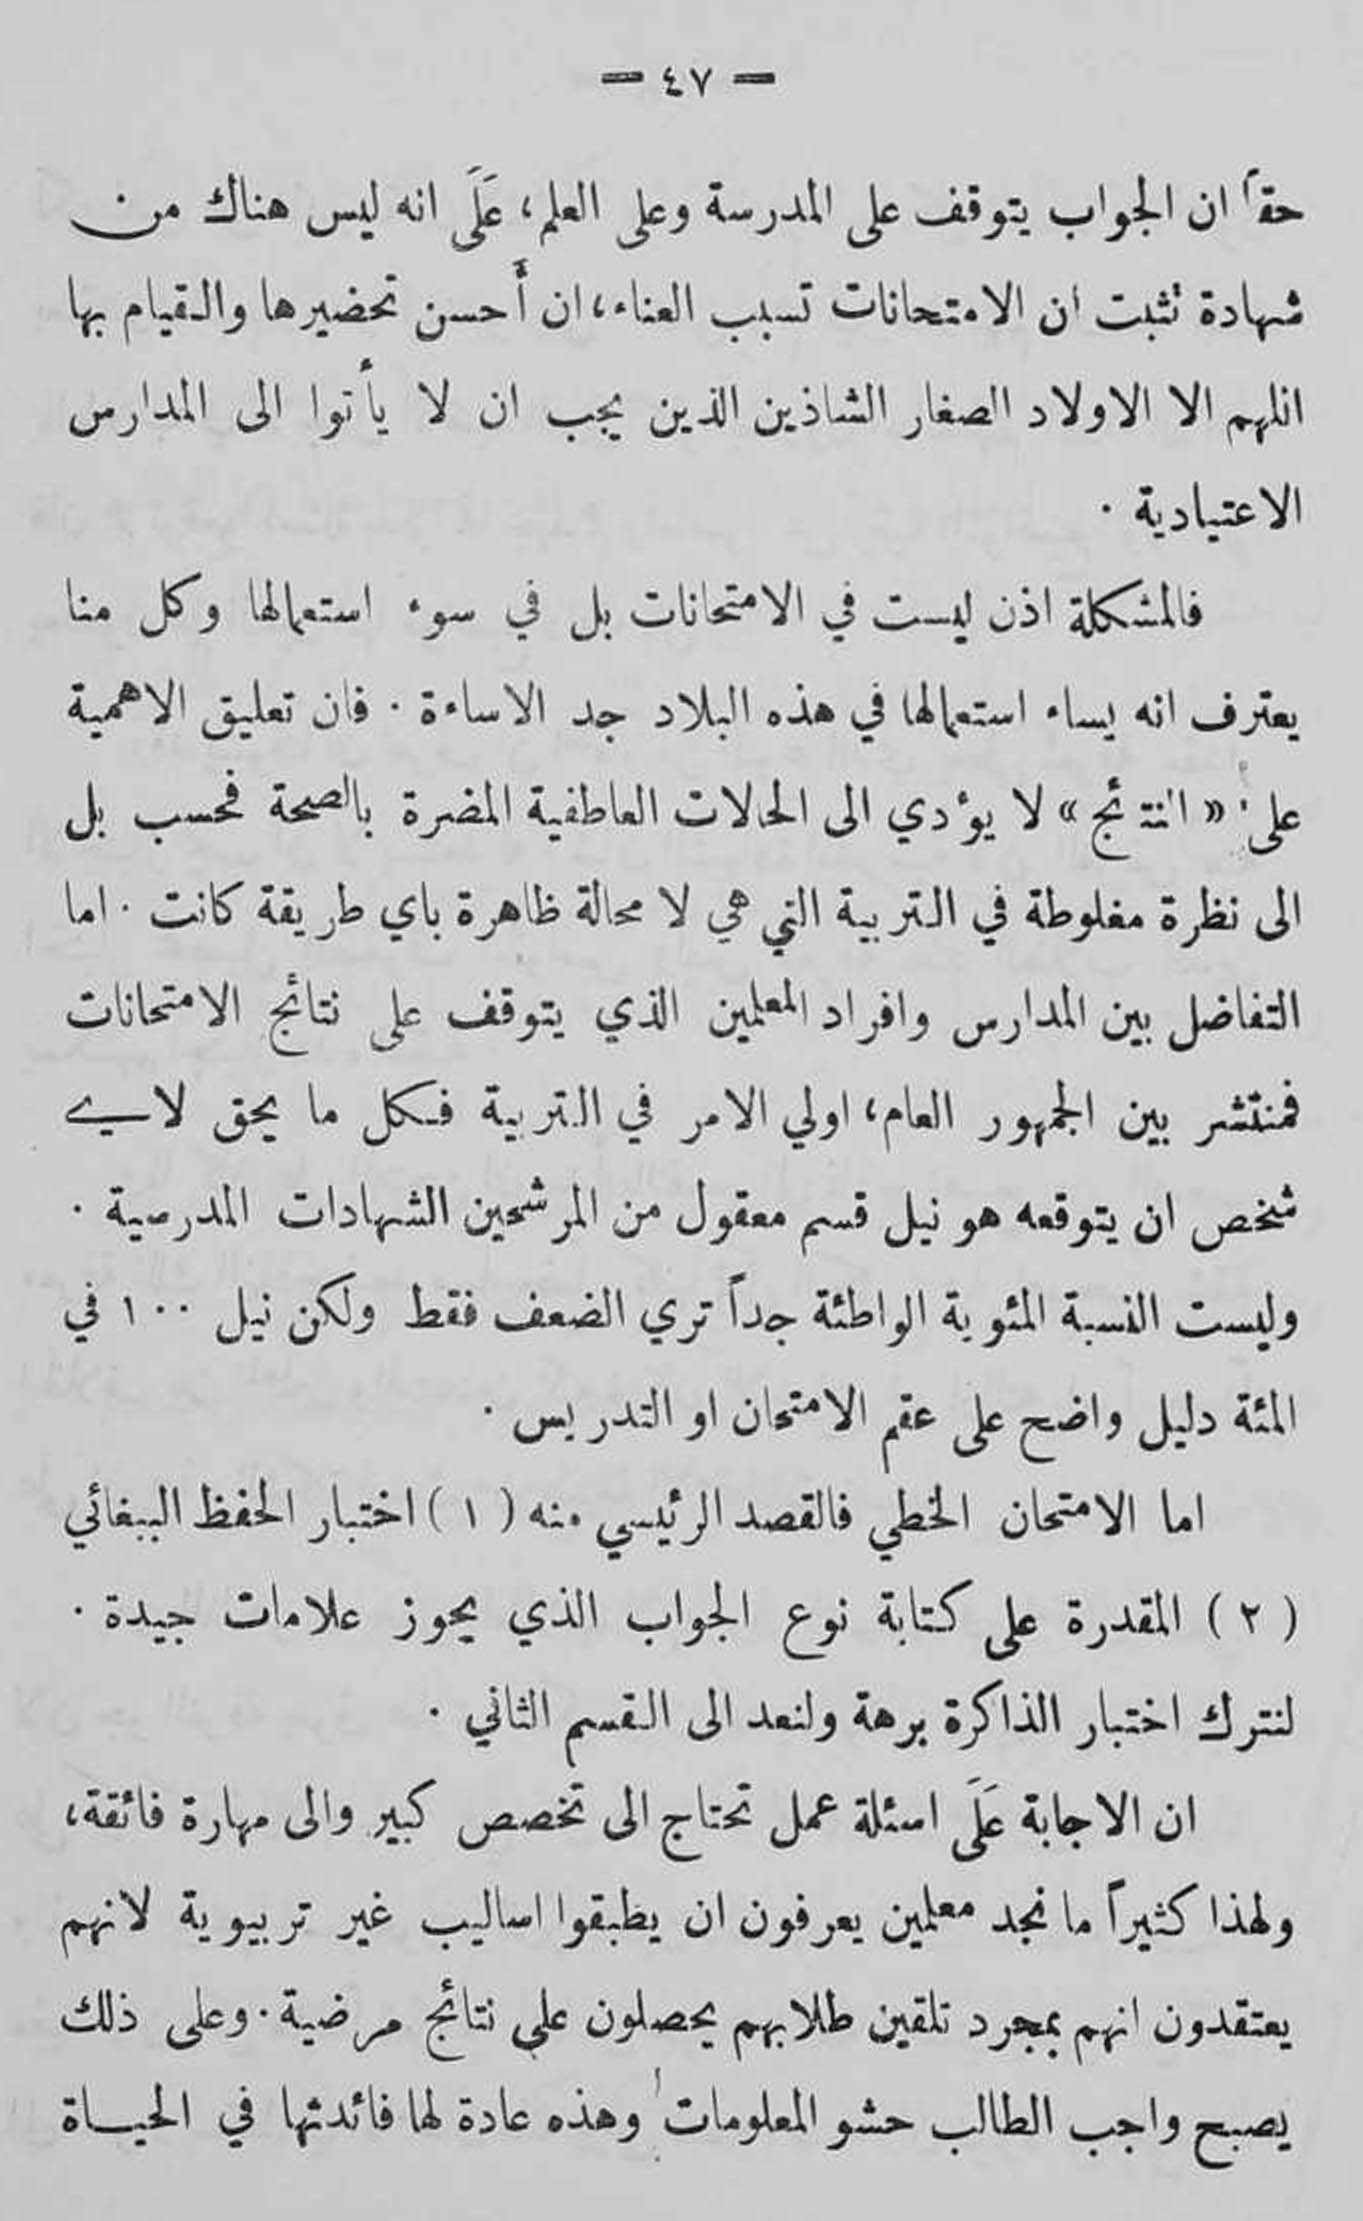 — ٤٧ —
حقاً ان الجواب يتوقف على المدرسة وعلى العلم، عَلَى انه ليس هناك من
شهادة تثبت ان الامتحانات تسبب العناء، ان أُحسن تحضيرها والقيام بها
اللهم الا الاولاد الصغار الشاذين الذين يجب ان لا يأتوا الى المدارس
الاعتيادية .
فالمشكلة اذن ليست في الامتحانات بل في سوء استعمالها وكل منا
يعترف انه يساء استعمالها في هذه البلاد جد الاساءة . فان تعليق الاهمية
على « النتئج » لا يؤدي الى الحالات العاطفية المضرة بالصحة فحسب بل
الى نظرة مغلوطة في التربية التي هي لا محالة ظاهرة باي طريقة كانت . اما
التفاضل بين المدارس وافراد المعلمين الذي يتوقف على نتائج الامتحانات
فمنتشر بين الجمهور العام، اولي الامر في التربية فكل ما يحق لاي
شخص ان يتوقعه هو نيل قسم معقول من المرشحين الشهادات المدرسية .
وليست النسبة المئوية الواطئة جداً تري الضعف فقط ولكن نيل ١٠٠ في
المئة دليل واضح على عقم الامتحان او التدريس .
اما الامتحان الخطي فالقصد الرئيسي منه ( ١ ) اختبار الحفظ الببغائي
( ٢ ) المقدرة على كتابة نوع الجواب الذي يحوز علامات جيدة .
لنترك اختبار الذاكرة برهة ولنعد الى القسم الثاني .
ان الاجابة عَلَى اسئلة عمل تحتاج الى تخصص كبير والى مهارة فائقة،
ولهذا كثيراً ما نجد معلمين يعرفون ان يطبقوا اساليب غير تربيوية لانهم
يعتقدون انهم بمجرد تلقين طلابهم يحصلون على نتائج مرضية . وعلى ذلك
يصبح واجب الطالب حشو المعلومات وهذه عادة لها فائدتها في الحياة